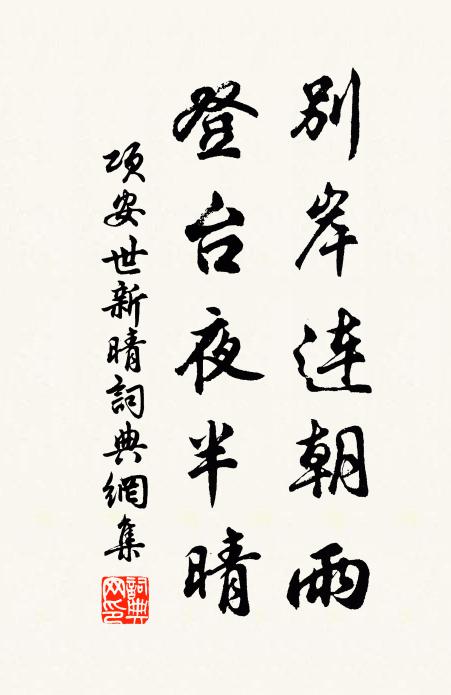 別岸连朝雨
登台夜半晴
項安世新晴詞典網集
詞典网印